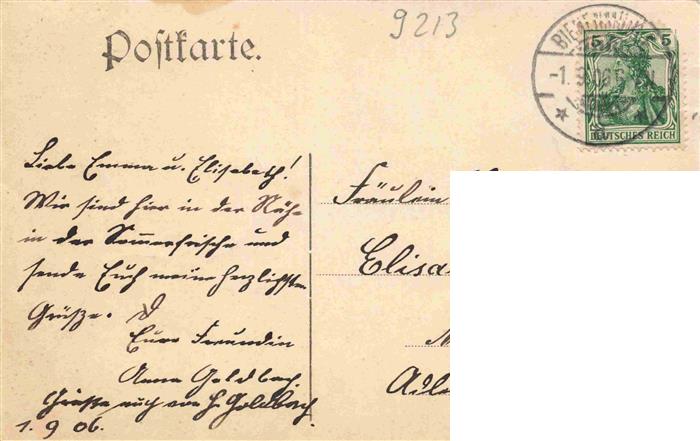 9213
Postkarte.
5 5
DEUTSCHES REICH
-1. 9.06
Liebe Emma u. Elisabeth!
Wir sind hier in der Nähe
in der Sommerfrische und
sende Euch meine herzlichsten
Grüße.
Eure Freundin
Anna Goldbach.
Grüße auch von H. Goldbach.
1.9.06.
Fräulein
Elisa